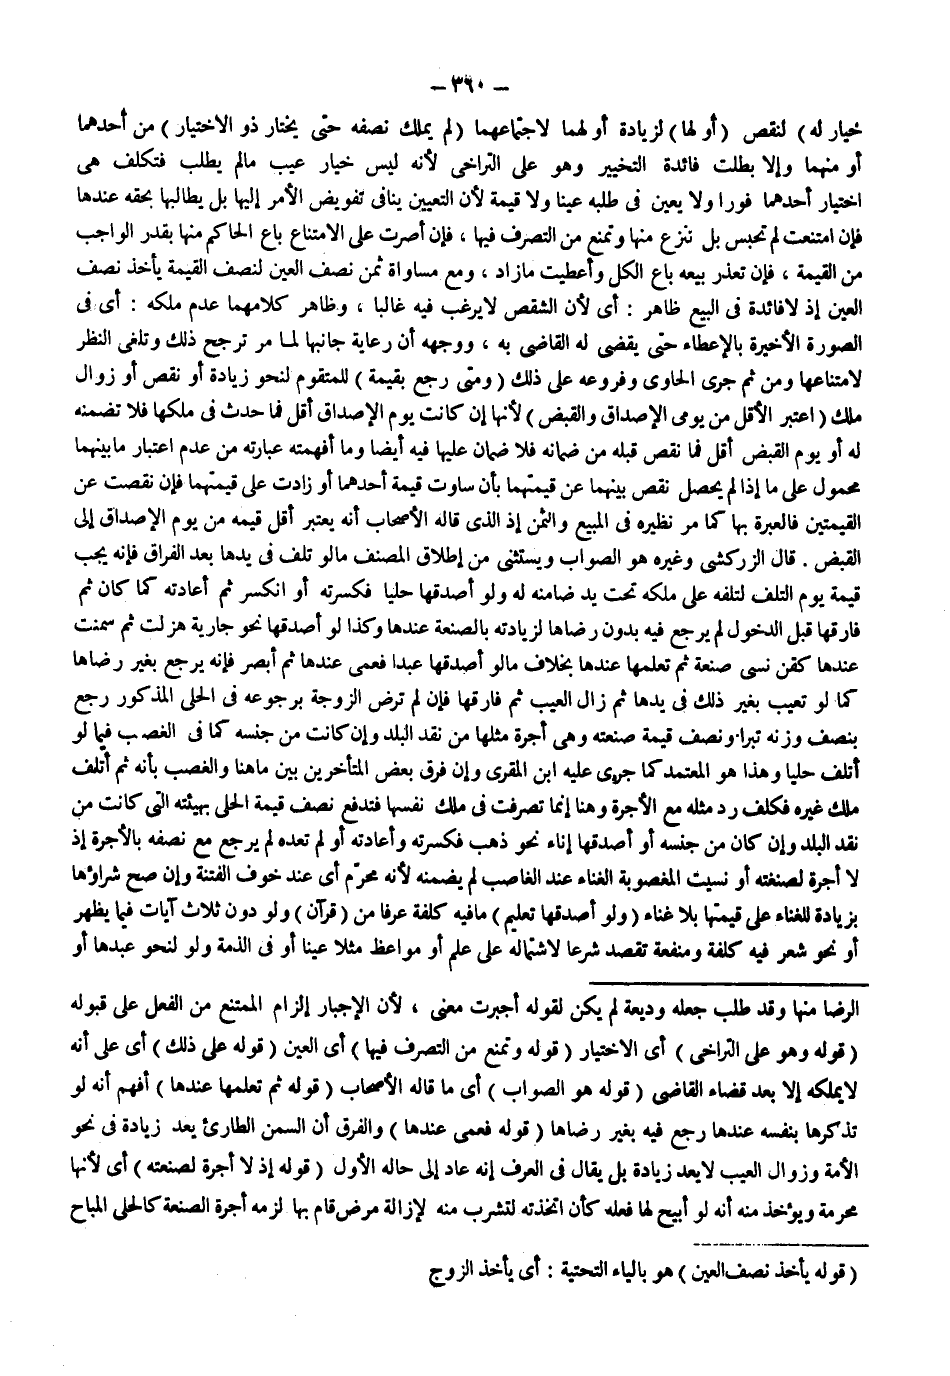 – ٣٦٠ –
خيار له) لنقص (أو لها) لزيادة أو لهما لاجتماعهما (لم يملك نصفه حتى يختار ذو الاختيار) من أحدهما
أو منهما وإلا بطلت فائدة التخيير وهو على التراخى لأنه ليس خيار عيب مالم يطلب فتكلف هى
اختيار أحدهما فورا ولا يعين فى طلبه عينا ولا قيمة لأن التعيين ينافى تفويض الأمر إليها بل يطالبها بحقه عندها
فإن امتنعت لم تحبس بل تنزع منها وتمنع من التصرف فيها ، فإن أصرت على الامتناع باع الحاكم منها بقدر الواجب
من القيمة ، فإن تعذر بيعه باع الكل وأعطيت مازاد ، ومع مساواة ثمن نصف العين لنصف القيمة يأخذ نصف
العين إذ لافائدة فى البيع ظاهر : أى لأن الشقص لايرغب فيه غالبا ، وظاهر كلامهما عدم ملكه : أى فى
الصورة الأخيرة بالإعطاء حتى يقضى له القاضى به ، ووجهه أن رعاية جانبها لما مر ترجح ذلك وتلغى النظر
لامتناعها ومن ثم جرى الحاوى وفروعه على ذلك (ومتى رجع بقيمة) للمتقوم لنحو زيادة أو نقص أو زوال
ملك (اعتبر الأقل من يومى الإصداق والقبض) لأنها إن كانت يوم الإصداق أقل فما حدث فى ملكها فلا تضمنه
له أو يوم القبض أقل فما نقص قبله من ضمانه فلا ضمان عليها فيه أيضا وما أفهمته عبارته من عدم اعتبار مابينهما
محمول على ما إذا لم يحصل نقص بينهما عن قيمتهما بأن ساوت قيمة أحدهما أو زادت على قيمتهما فإن نقصت عن
القيمتين فالعبرة بها كما مر نظيره فى المبيع والثمن إذ الذى قاله الأصحاب أنه يعتبر أقل قيمه من يوم الإصداق إلى
القبض . قال الزركشى وغيره هو الصواب ويستثنى من إطلاق المصنف مالو تلف فى يدها بعد الفراق فإنه يجب
قيمة يوم التلف لتلفه على ملكه تحت يد ضامنه له ولو أصدقها حليا فكسرته أو انكسر ثم أعادته كما كان ثم
فارقها قبل الدخول لم يرجع فيه بدون رضاها لزيادته بالصنعة عندها وكذا لو أصدقها نحو جارية هزلت ثم سمنت
عندها كقن نسى صنعة ثم تعلمها عندها بخلاف مالو أصدقها عبدا فعمى عندها ثم أبصر فإنه يرجع بغير رضاها
كما لو تعيب بغير ذلك فى يدها ثم زال العيب ثم فارقها فإن لم ترض الزوجة برجوعه فى الحلى المذكور رجع
بنصف وزنه تبرا ونصف قيمة صنعته وهى أجرة مثلها من نقد البلد وإن كانت من جنسه كما فى الغصب فيما لو
أتلف حليا وهذا هو المعتمد كما جرى عليه ابن المقرى وإن فرق بعض المتأخرين بين ماهنا والغصب بأنه ثم أتلف
ملك غيره فكلف رد مثله مع الأجرة وهنا إنما تصرفت فى ملك نفسها فتدفع نصف قيمة الحلى بهيئته التى كانت من
نقد البلد وإن كان من جنسه أو أصدقها إناء نحو ذهب فكسرته وأعادته أو لم تعده لم يرجع مع نصفه بالأجرة إذ
لا أجرة لصنغته أو نسيت المغصوبة الغناء عند الغاصب لم يضمنه لأنه محرّم أى عند خوف الفتنة وإن صح شراؤها
بزيادة للغناء على قيمتها بلا غناء (ولو أصدقها تعليم) مافيه كلفة عرفا من (قرآن) ولو دون ثلاث آيات فيما يظهر
أو نحو شعر فيه كلفة ومنفعة تقصد شرعا لاشتماله على علم أو مواعظ مثلا عينا أو فى الذمة ولو لنحو عبدها أو
الرضا منها وقد طلب جعله وديعة لم يكن لقوله أجبرت معنى ، لأن الإجبار إلزام الممتنع من الفعل على قبوله
(قوله وهو على التراخى) أى الاختيار (قوله وتمنع من التصرف فيها) أى العين (قوله على ذلك) أى على أنه
لايملكه إلا بعد قضاء القاضى (قوله هو الصواب) أى ما قاله الأصحاب (قوله ثم تعلمها عندها) أفهم أنه لو
تذكرها بنفسه عندها رجع فيه بغير رضاها (قوله فعمى عندها) والفرق أن السمن الطارئ يعد زيادة فى نحو
الأمة وزوال العيب لايعد زيادة بل يقال فى العرف إنه عاد إلى حاله الأول (قوله إذ لا أجرة لصنعته) أى لأنها
محرمة ويؤخذ منه أنه لو أبيح لها فعله كأن اتخذته لتشرب منه لإزالة مرض قام بها لزمه أجرة الصنعة كالحلى المباح
(قوله يأخذ نصف العين) هو بالياء التحتية : أى يأخذ الزوج